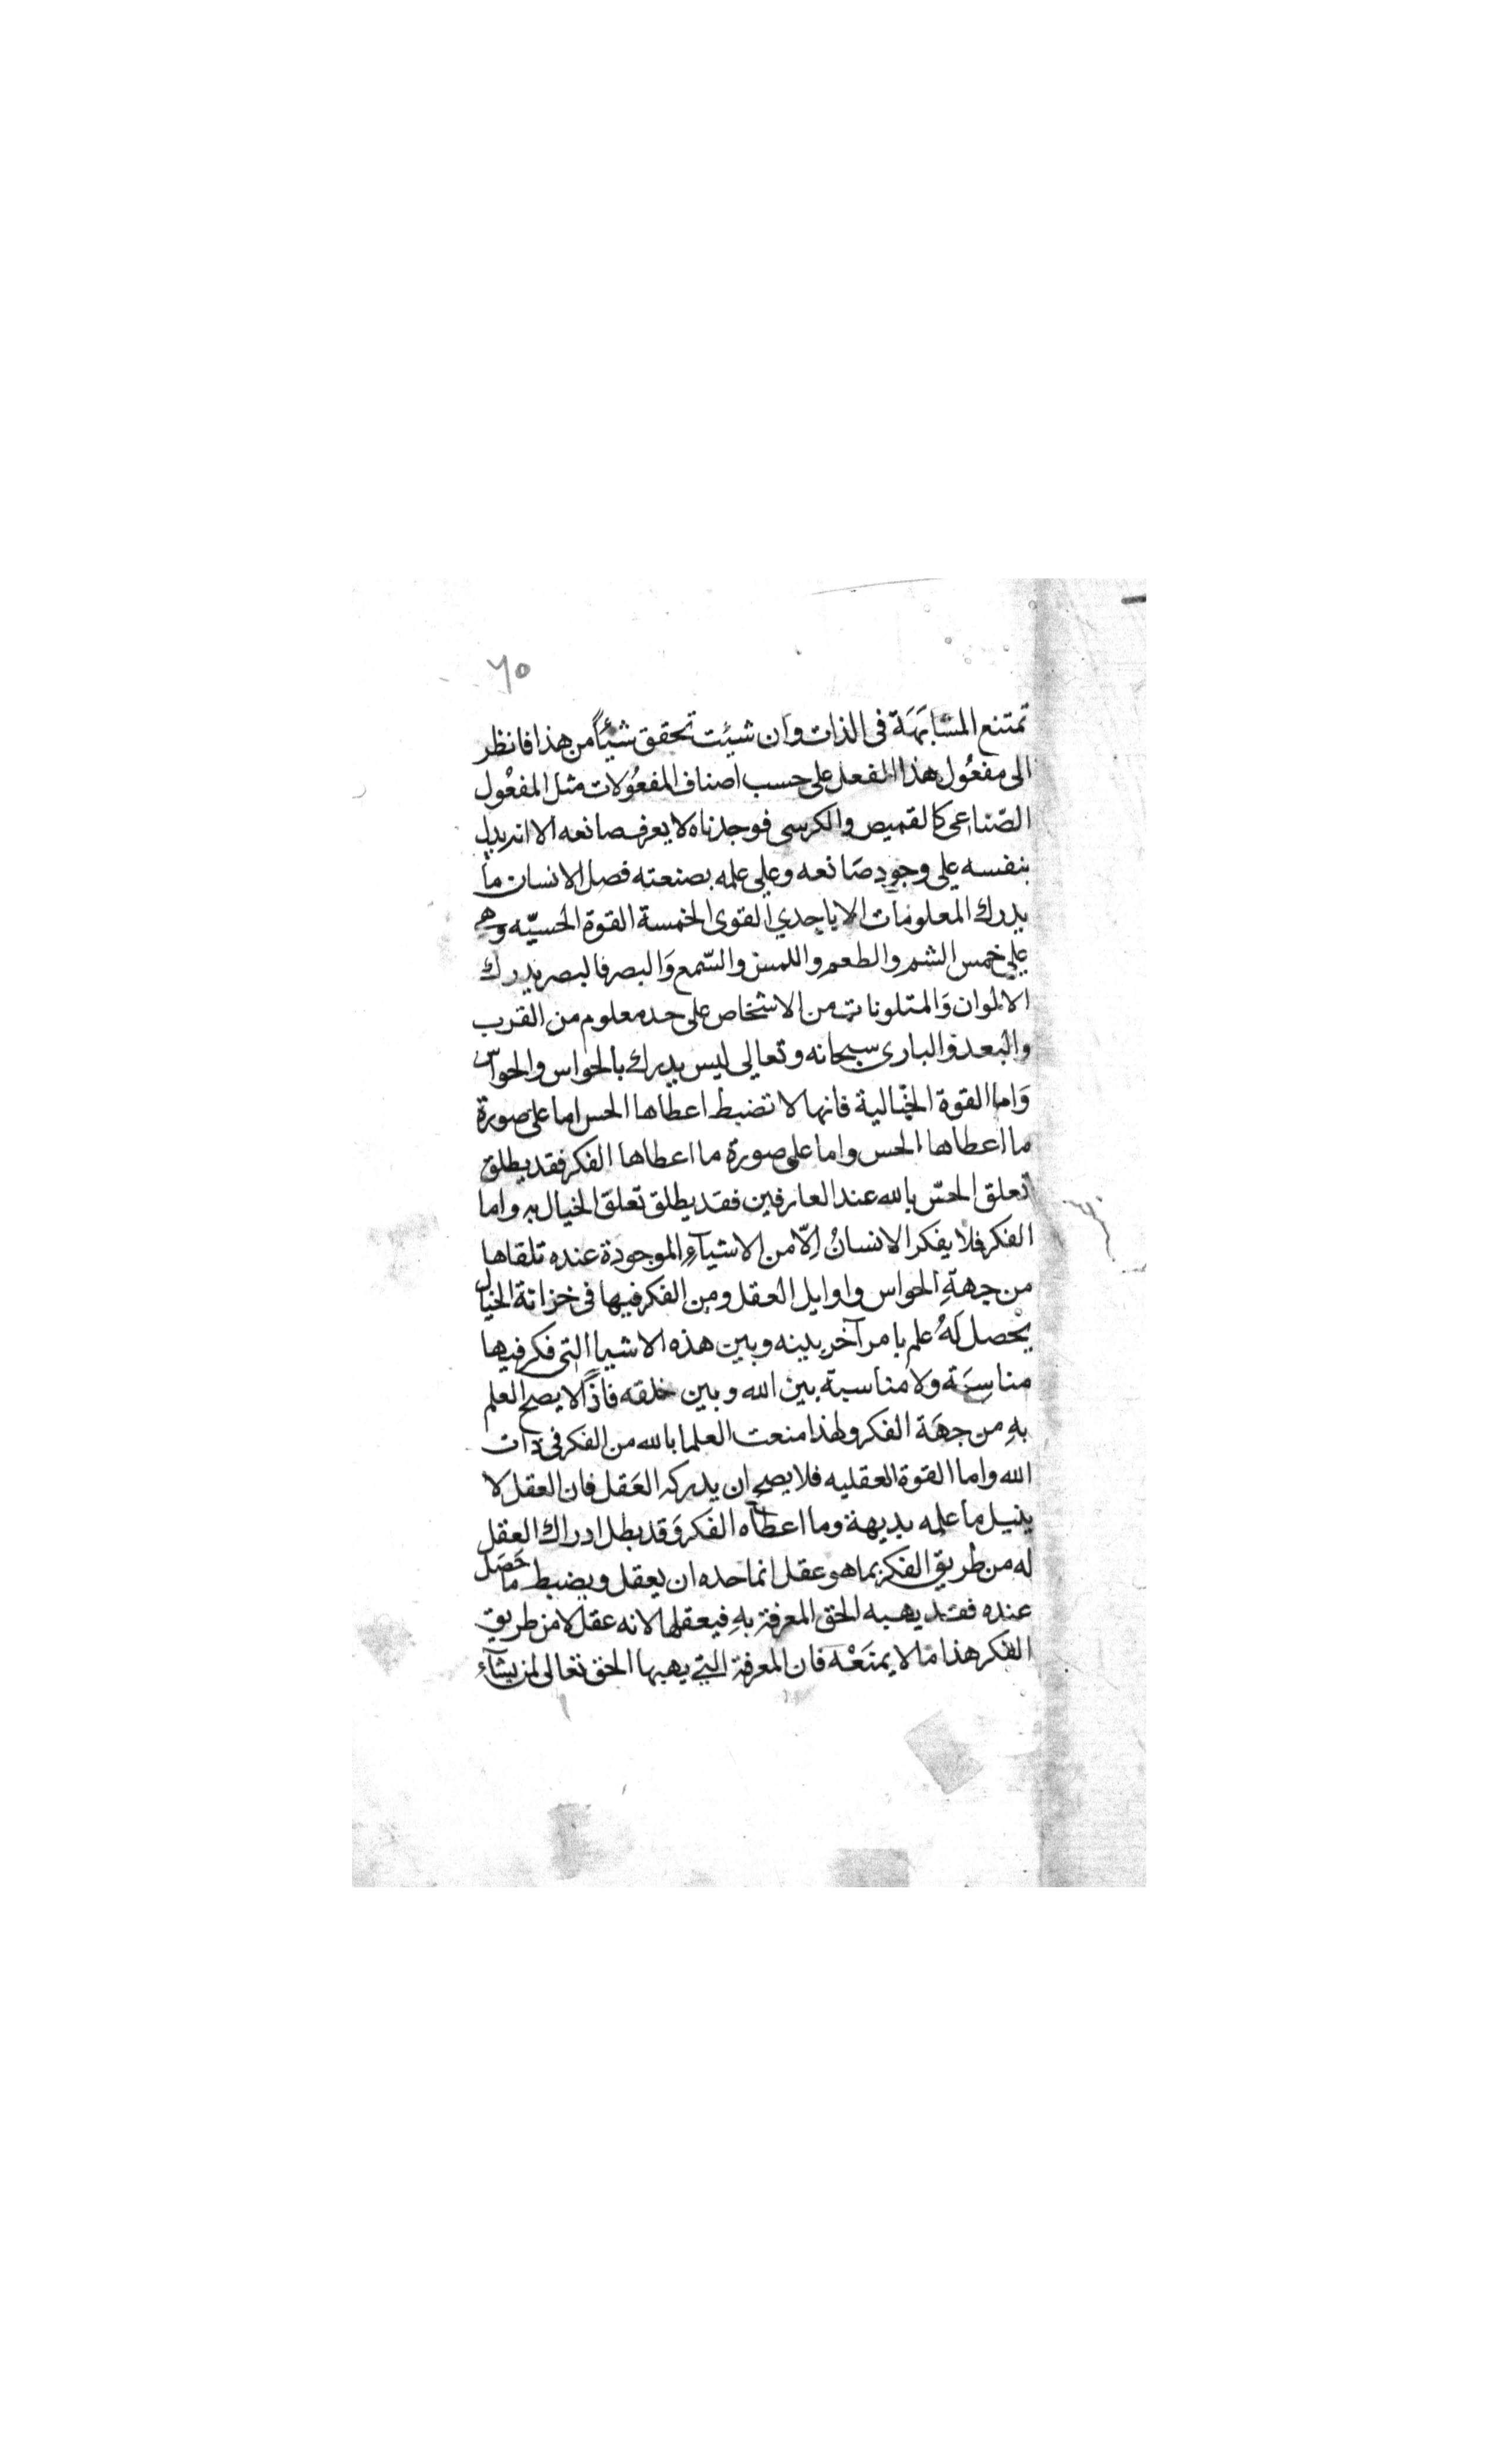 ٦٥
تمتنع المشابَهَة فى الذات وان شيئت تحقق شيئاً من هذا فانظر
الى مفعُول هذا المفعل على حسب اصناف المفعُولات مثل المفعُول
الصّناعى كالقميص والكرسى فوجدناه لا يعرف صانعه الا انه يدل
بنفسه على وجودِ صَانعه وعلى علمه بصنعته فصل الانسان ما
يدرك المعلومات الا باحدي القوى الخمسة القوة الحسيّه وهى
على خمس الشم والطعم واللمس والسّمع وَالبصر فالبصر يدرك
الالوان وَالمتلونات من الاشخاص على حد معلوم من القرب
والبعد والبارى سبحانه وتعالى ليس يدرك بالحواس والحواس
وَاما القوة الخيالية فانها لا تضبط اعطاها الحس اما على صورة
ما اعطاها الحس واما على صورة ما اعطاها الفكر فقد يطلق
تعلق الحسّ بالله عند العارفين فقد يطلق تعلق الخيال به واما
الفكر فلا يفكر الانسانُ اِلّا من الاشيآءِ الموجودة عنده تلقاها
من جهةِ الحواس واوايل العقل ومن الفكر فيها فى خزانة الخيال
يحْصل لَهُ علم بامر آخر بينه وبين هذه الاشيا التى فكر فيها
مناسبَة ولا مناسبة بين الله وبين خلقه فاذًا لا يصح العلم
بهِ من جهَة الفكر ولهذا منعت العلما بالله من الفكر فى ذات
الله واما القوة العقليه فلا يصح ان يدركه العَقل فان العقل لا
ينيل ما علمه بديهة وما اعطاه الفكر وَقد بطل ادراك العقل
له من طريق الفكر بما هو عقل انما حده ان يعقل ويضبط ما حَصَل
عنده فقد يهبه الحق المعرفة بهِ فيعقلها لانه عقل لا من طريق
الفكر هذا ما لا يمنَعْه فان المعرفة التى يهبها الحق تعالى لمن يشآء